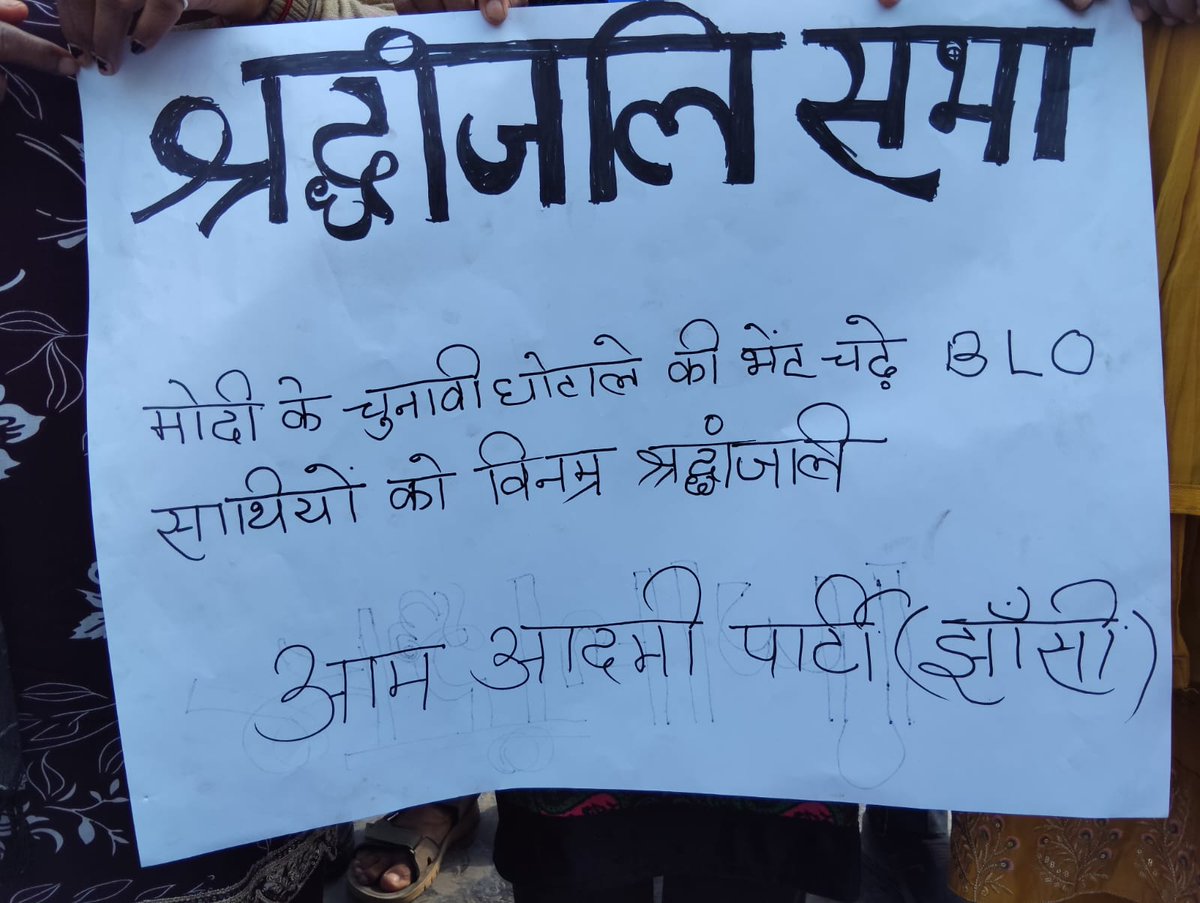 श्रद्धांजलि सभा
मोदी के चुनावी घोटाले की भेंट चढ़े BLO
साथियों को विनम्र श्रद्धांजाली
आम आदमी पार्टी (झाँसी)